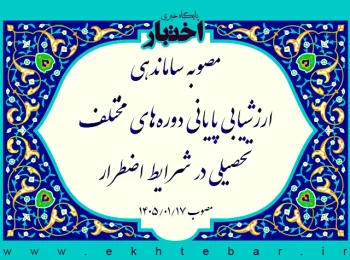 پایگاه خبری
اختبار
مصوبه ساماندهی
ارزشیابی پایانی دوره‌های مختلف
تحصیلی در شرایط اضطرار
مصوب ۱۴۰۵/۰۱/۱۷
www.ekhtebar.ir